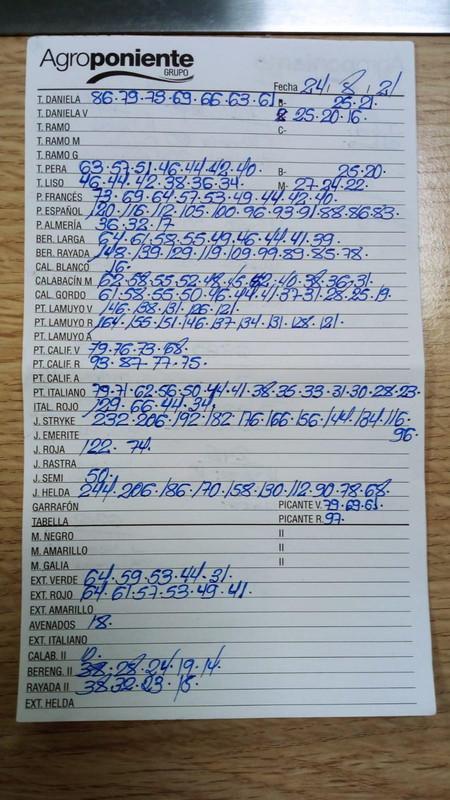 Agroponiente
GRUPO
Fecha 24 / 8 / 21
T. DANIELA 86·79·79·69·66·63·61 B- 25·21·
T. DANIELA V 25·20·16·
T. RAMO C-
T. RAMO M
T. RAMO G
T. PERA 63·57·51·46·44·42·40· B- 25·20·
T. LISO 46·44·42·38·36·34· M- 27·24·22·
P. FRANCÉS 73·69·64·57·53·49·44·42·40·
P. ESPAÑOL 120·116·112·105·100·96·93·91·88·86·83·
P. ALMERÍA 36·32·17
BER. LARGA 64·61·58·55·49·46·44·41·39·
BER. RAYADA 148·139·129·119·109·99·89·85·78·
CAL. BLANCO 16·
CALABACÍN M 62·58·55·52·48· ·40·38·36·31·
CAL. GORDO 61·58·55·50·46·44·41·37·31·28·25·19·
PT. LAMUYO V 146·138·131·126·121·
PT. LAMUYO R 164·155·151·146·137·134·131·128·121·
PT. LAMUYO A
PT. CALIF. V 79·76·73·68·
PT. CALIF. R 93·87·77·75·
PT. CALIF. A
PT. ITALIANO 79·71·62·56·50·44·41·38·35·33·31·30·28·23·
ITAL. ROJO 129·66·44·34·
J. STRYKE 232·206·192·182·176·166·156·144·134·116·
J. EMERITE 96·
J. ROJA 122·74·
J. RASTRA
J. SEMI 50·
J. HELDA 244·206·186·170·158·130·112·90·78·68·
GARRAFÓN PICANTE V. 79·69·61·
TABELLA PICANTE R. 97·
M. NEGRO II
M. AMARILLO II
M. GALIA II
EXT. VERDE 64·59·53·44·31·
EXT. ROJO 64·61·57·53·49·41·
EXT. AMARILLO
AVENADOS 18·
EXT. ITALIANO
CALAB. II
BERENG. II 38·28·24·19·14·
RAYADA II 38·32·23·15·
EXT. HELDA